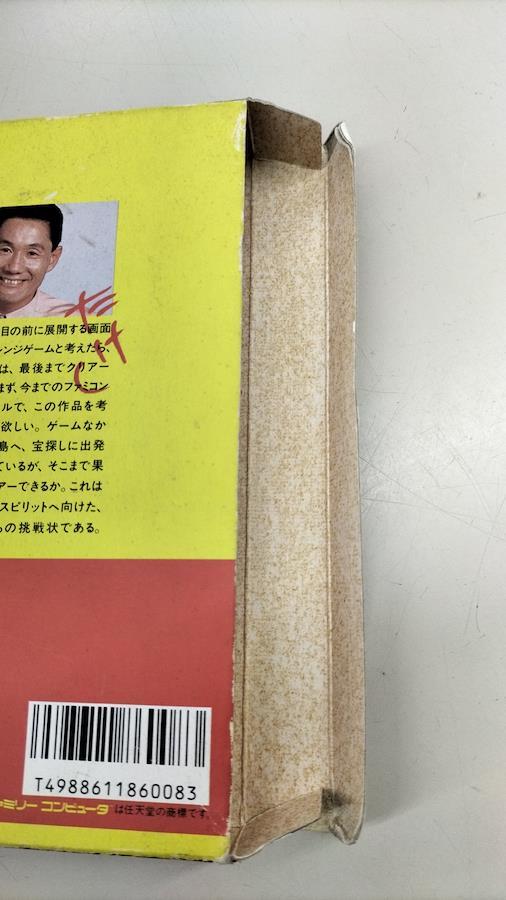 たけし
目の前に展開する画面
レンジゲームと考えたら、
は、最後までクリアー
まず、今までのファミコン
ルで、この作品を考
欲しい。ゲームなか
島へ、宝探しに出発
ているが、そこまで果
アーできるか。これは
スピリットへ向けた、
らの挑戦状である。
T4988611860083
ァミリー コンピュータは任天堂の商標です。